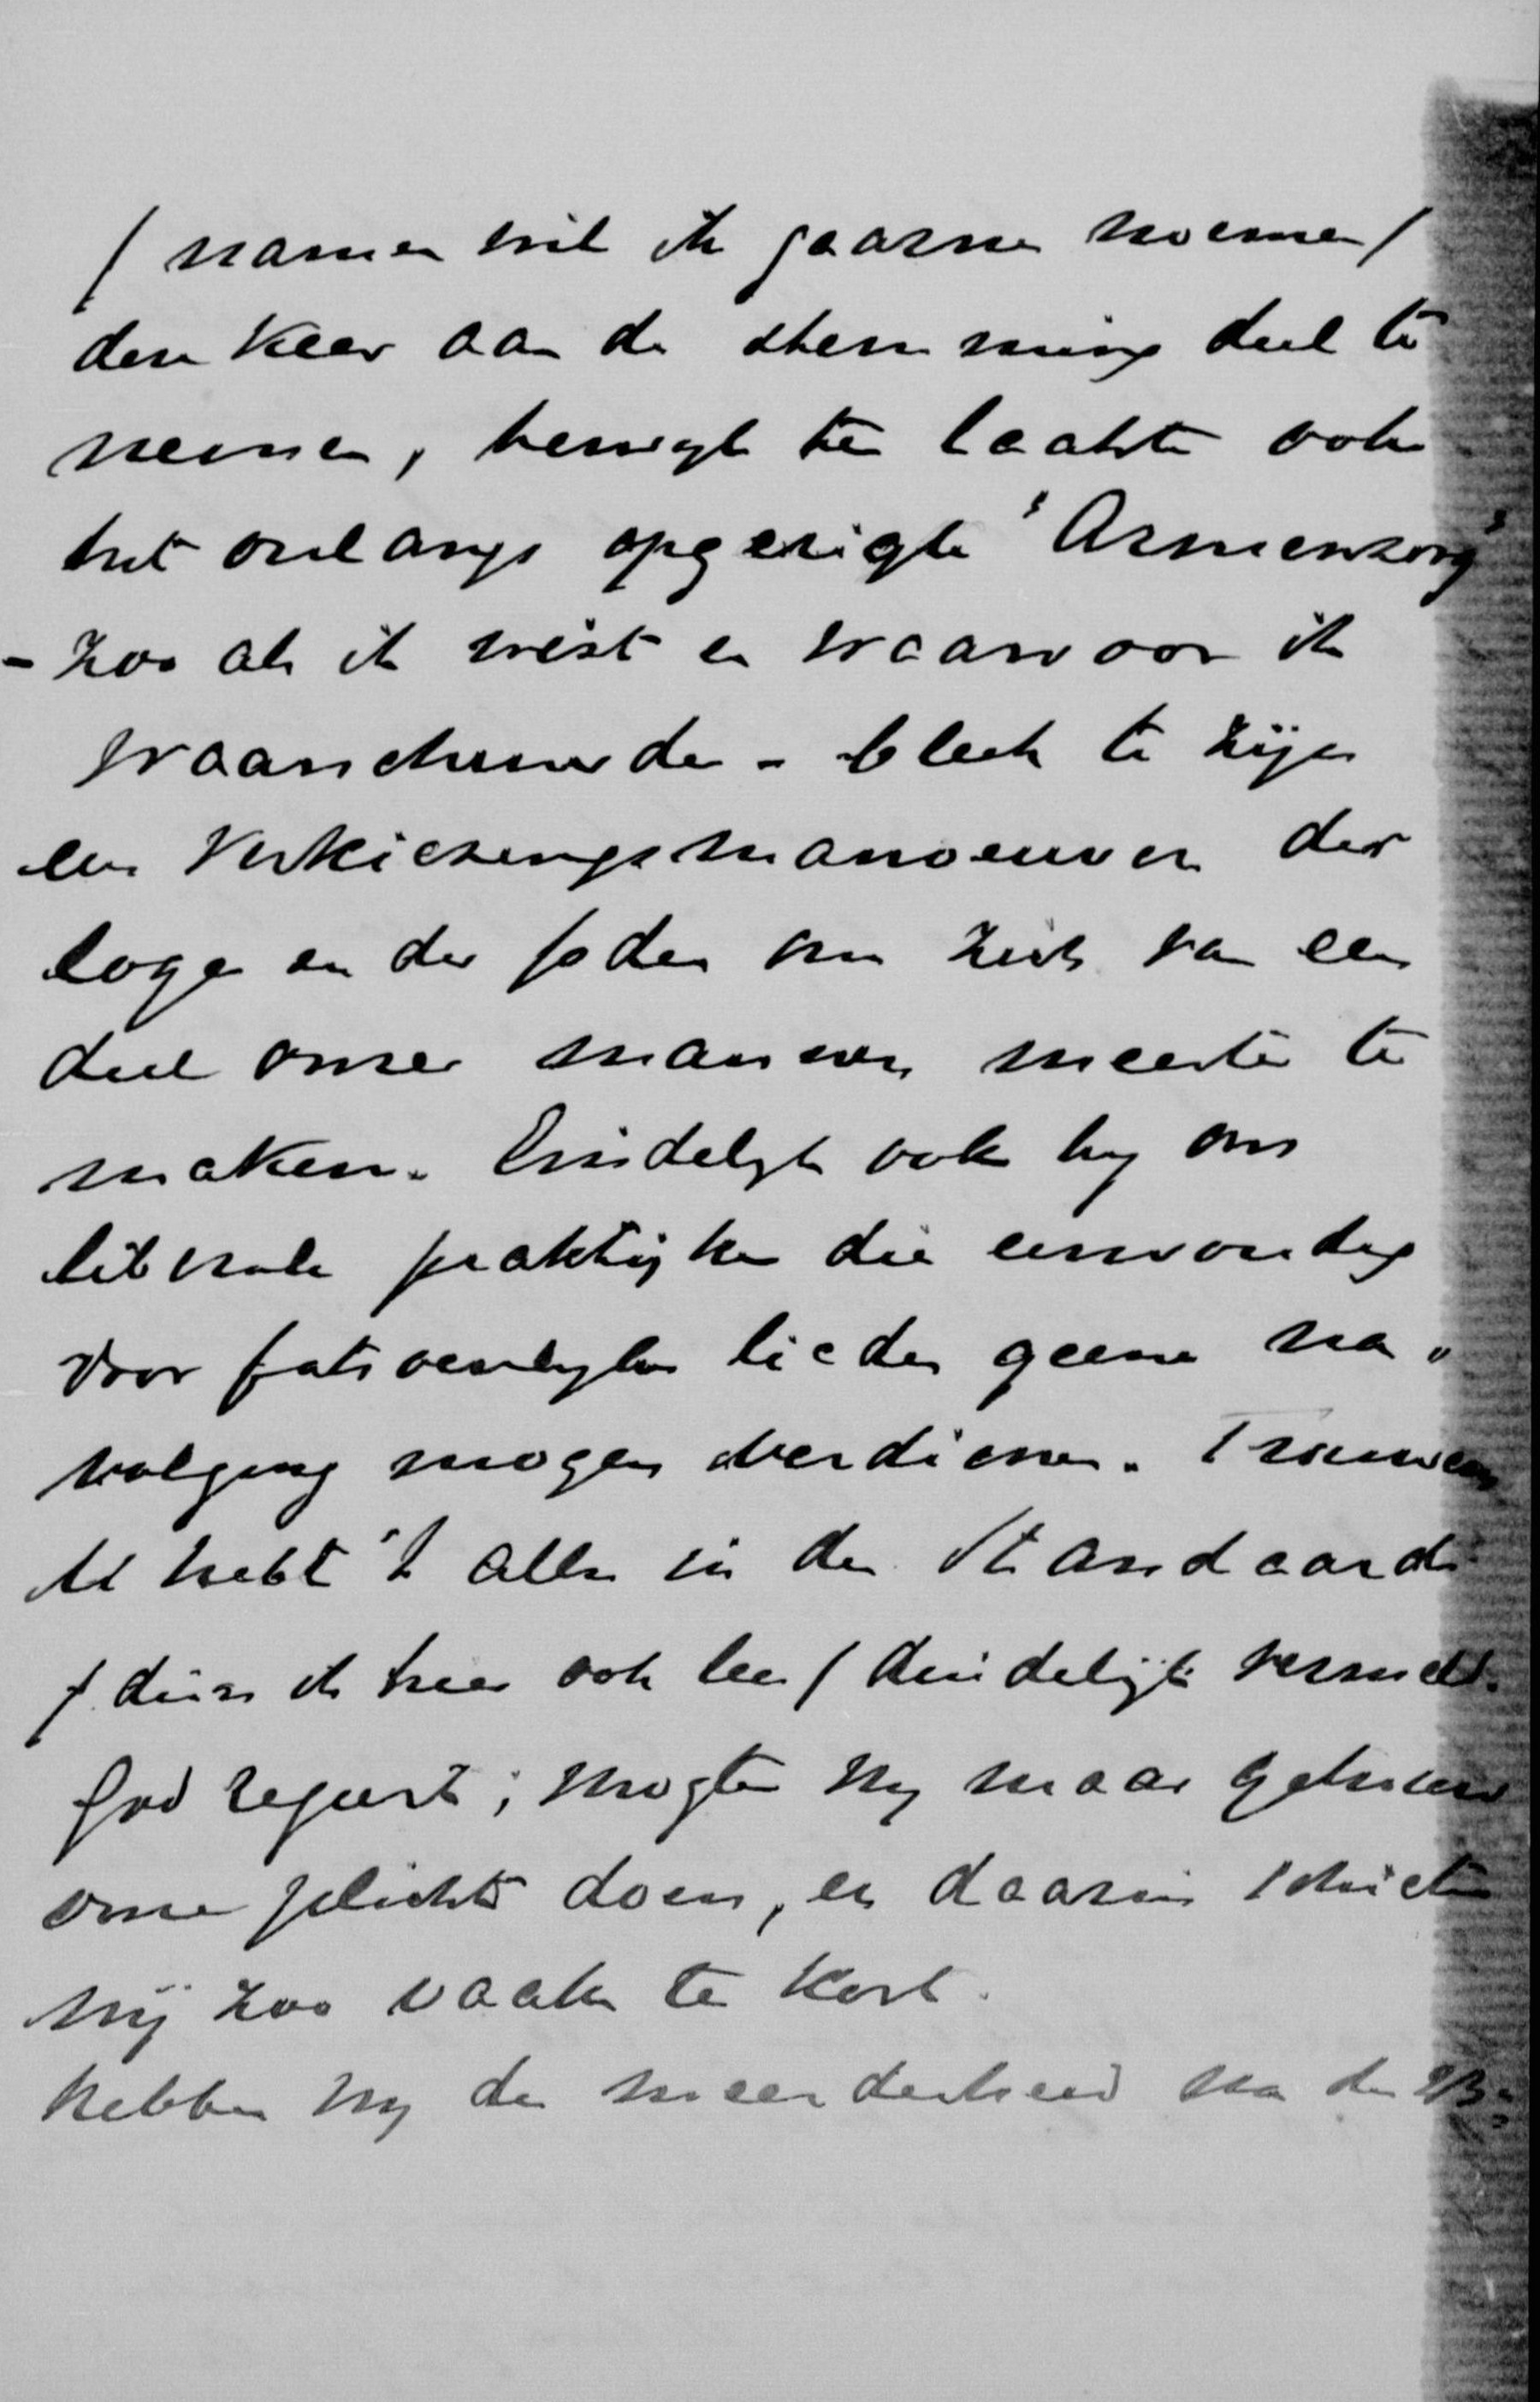 ( namen wil ik gaarne noemen )
den keer aan de stemming deel te
nemen, terwyl ten laatste ook
het onlangs opgerigte "Armenzorg"
- zoo als ik wist en waarvoor ik
waarschuwde - bleek te zijn
een Verkiezingsmanoeuver der
loge en der Joden om zich van een
deel onzer mannen meester te
maken. Eindelyk ook by ons
liberale praktijken die eenvoudig
voor fatsoenlyke lieden geene na„
volging mogen verdienen. Trouwens
U hebt 't alles in de Standaard
( dien ik hier ook lees ) duidelijk vermeld.
God regeert; mogten wy maar getrouw
onze plicht doen, en daarin schieten
wij zoo vaak te kort.
Hebben wy de meerderheid na den